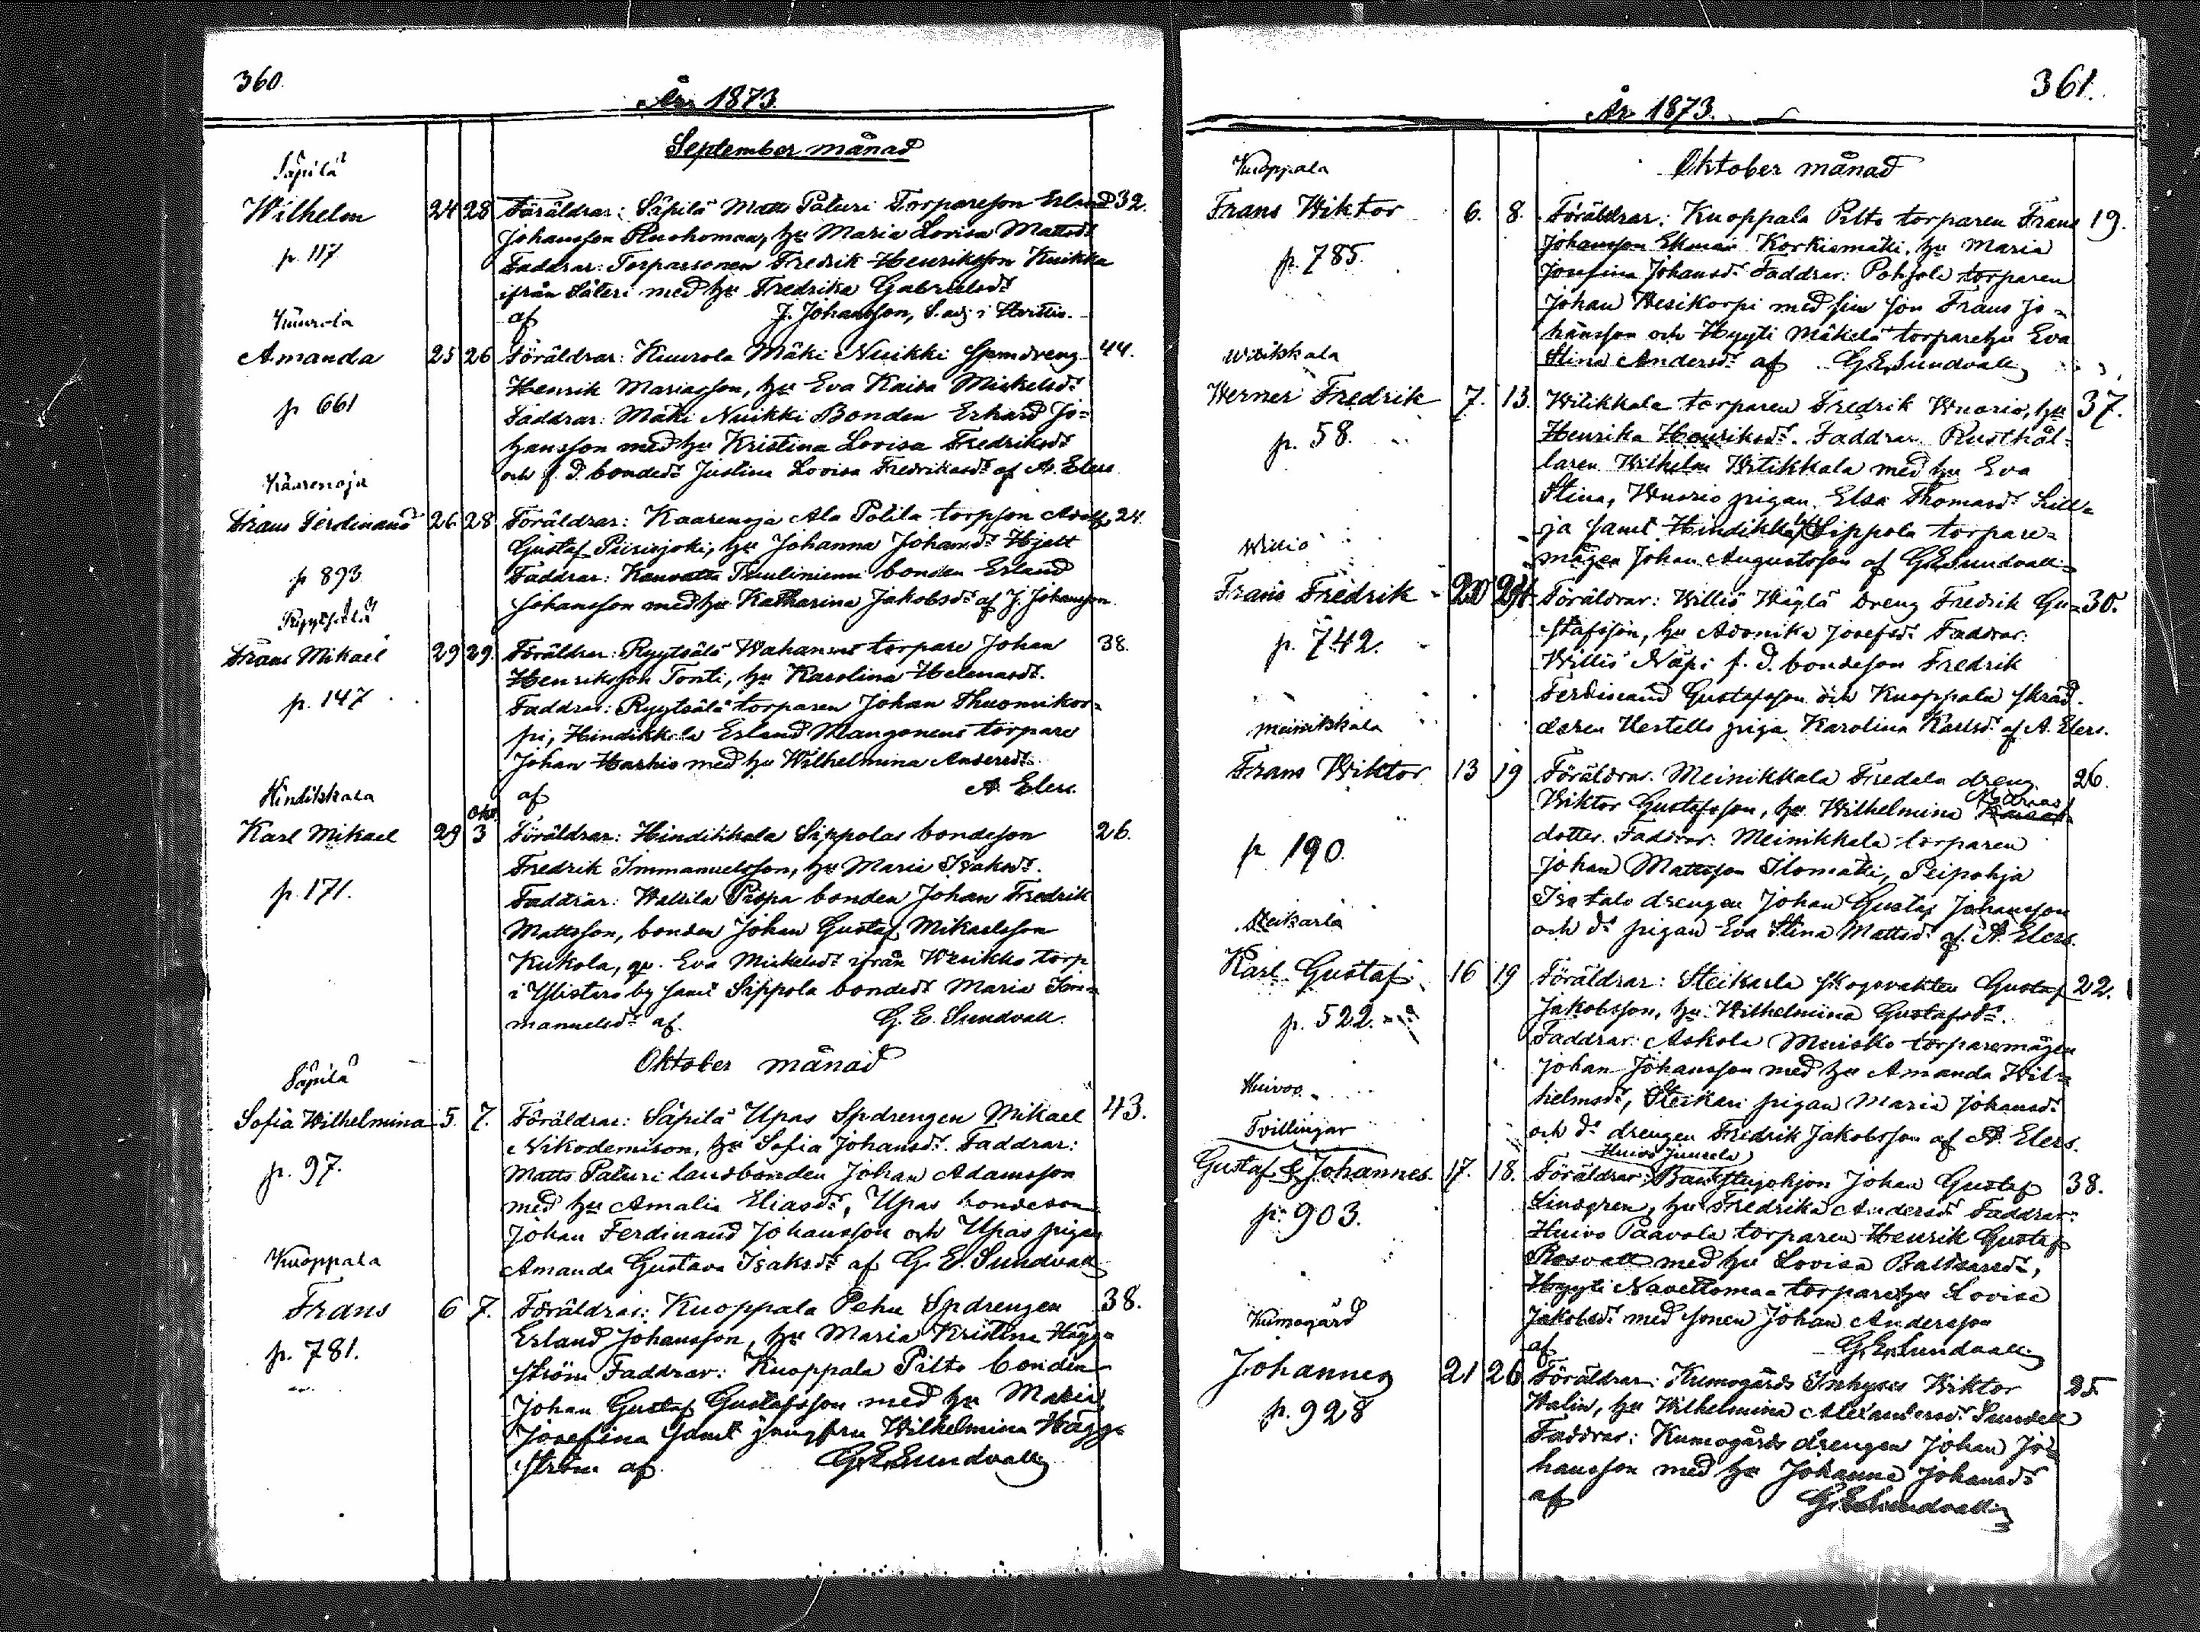 360.
År 1873.
September månad
Säpilä
Wilhelm 24 28 Föräldrar: Säpilä Matts Paturi Torpareson Erland 32.
p. 117
Johansson Ruohoman, hu Maria Lovisa Mattsdr
Faddrar: Torparesonen Fredrik Henriksson Knikka
ifrån Säteri med hu Fredrika Gabrielsdr
af J. Johansson, S. adj i Hvittis.
Kuurola
Amanda 25 26 Föräldrar: Kuurola Mäki Nuikki Spmdreng 44.
p 661
Henrik Mariasson, hu Eva Kaisa Mickelsdr
Faddrar: Mäki Nuikki Bonden Erhard Jo-
hansson med hu Kristina Lovisa Fredriksdr
och f. d. bondedr Justina Lovisa Fredriksdr af A. Elers
Käärenoja
Frans Ferdinand 26 28 Föräldrar: Kaarenoja Ala Potila torpson Adolf 24.
p 893
Gustaf Piirisjoki, hu Johanna Johansdr Hjelt
Faddrar: Tuuliniemi bonden Erland
Johansson med hu Katharina Jakobsdr af J. Johansson
Ryytsälä
Frans Mikael 29 29. Föräldrar: Ryytsälä Wahanens torpare Johan 38.
p. 147
Henriksson Tonti, hu Karolina Helenasdr.
Faddrar: Ryytsälä torparen Johan Thuomikor-
pi, Hindikkala Erland Mangonens torpare
Johan Harhio med hu Wilhelmina Andersdr
af A. Elers.
Hindikkala
Karl Mikael 29 Okt. 3 Föräldrar: Hindikkala Sippolas bondeson 26.
p. 171.
Fredrik Immanuelsson, hu Maria Isaksdr.
Faddrar: Wallila Pispa bonden Johan Fredrik
Mattsson, bonden Johan Gustaf Mikaelsson
Kukola, qv. Eva Mickelsdr ifrån Wesikko torp
i Ylistaro by samt Sippola bondedr Maria Im-
manuelsdr af G. E. Sundvall.
Oktober månad
Säpilä
Sofia Wilhelmina 5. 7. Föräldrar: Säpilä Upas Spdrengen Mikael 43.
p. 97.
Nikodemison, hu Sofia Johansdr. Faddrar:
Matts Paturi landbonden Johan Adamsson
med hu Amalia Eliasdr, Upas bondeson
Johan Ferdinand Johansson och Upas pigan
Amanda Gustava Isaksdr af G. E. Sundvall
Kuoppala
Frans 6 7. Föräldrar: Kuoppala Pehu Spdrengen 38.
p. 781.
Erland Johansson, hu Maria Kristina Hägg-
ström Faddrar: Kuoppala Pilto bonden
Johan Gustaf Gustafsson med hu Maria
Josefina samt jungfru Wilhelmina Hägg-
ström af G. E. Sundvall
361.
År 1873.
Oktober månad
Kuoppala
Frans Wiktor 6. 8. Föräldrar: Kuoppala Pilto torparen Frans 19.
p. 785.
Johansson Ekman Korkiamäki, hu Maria
Josefina Johansdr Faddrar: Pohjola torparen
Johan Wesikorpi med sin son Frans Jo-
hansson och Hyyti Mäkelä torparehu Eva
Stina Andersdr af G. E. Sundvall
Witikkala
Werner Fredrik 7. 13. Witikkala torparen Fredrik Wuorio, hu 37.
p. 58.
Henrika Henriksdr. Faddrar Rusthål-
laren Wilhelm Witikkala med hu Eva
Stina, Wuorio pigan Elsa Thomasdr Lill-
ja samt Hindikkala Sippola torpare-
mågen Johan Augustsson af G. E. Sundvall
Williö
Frans Fredrik 20 24 Föräldrar: Williö Häylä Dreng Fredrik Gu- 30.
p. 742.
stafsson, hu Adonika Josefsdr Faddrar:
Williö Näpi f. d. bondeson Fredrik
Ferdinand Gustafsson och Kuoppala skräd-
daren Uestells piga Karolina Karlsdr af A. Elers.
Meinikkala
Frans Wiktor 13 19 Föräldrar. Meinikkala Fredela dreng 26.
p 190.
Wiktor Gustafsson, hu Wilhelmina
dotter. Faddrar. Meinikkala torparen
Johan Mattsson Ilomäki, Peipohja
Isotalo drengen Johan Gustaf Johansson
och do pigan Eva Stina Mattsdr af A. Elers.
Steikarla
Karl Gustaf 16 19 Föräldrar: Steikarla skogsvakten Gustaf 22.
p. 522.
Jakobsson, hu Wilhelmina Gustafsdr.
Faddrar: Askola Muisko torparemågen
Johan Johansson med hu Amanda Wil-
helmsdr, Steikari pigan Maria Johansdr
och do drengen Fredrik Jakobsson af A. Elers.
Huivoo
Tvillingar
Gustaf & Johannes. 17. 18. Föräldrar: Huivo Junnela Johan Gustaf 38.
p. 903.
Lindgren, hu Fredrika Andersdr Faddrar:
Huivo Paavola torparen Henrik Gustaf
Rosvall med hu Lovisa Baltsarsdr,
Hyyti Navettomaa torparehu Lovisa
Jakobsdr med sonen Johan Andersson
af G. E. Sundvall
Kumogård
Johannes 21 26 Föräldrar: Kumogårds Inhyses Wiktor 25
p. 928
Walin, hu Wilhelmina Alexandersdr Sundell
Faddrar: Kumogårds drengen Johan Jo-
hansson med hu Johanna Johansdr
af G. E. Sundvall